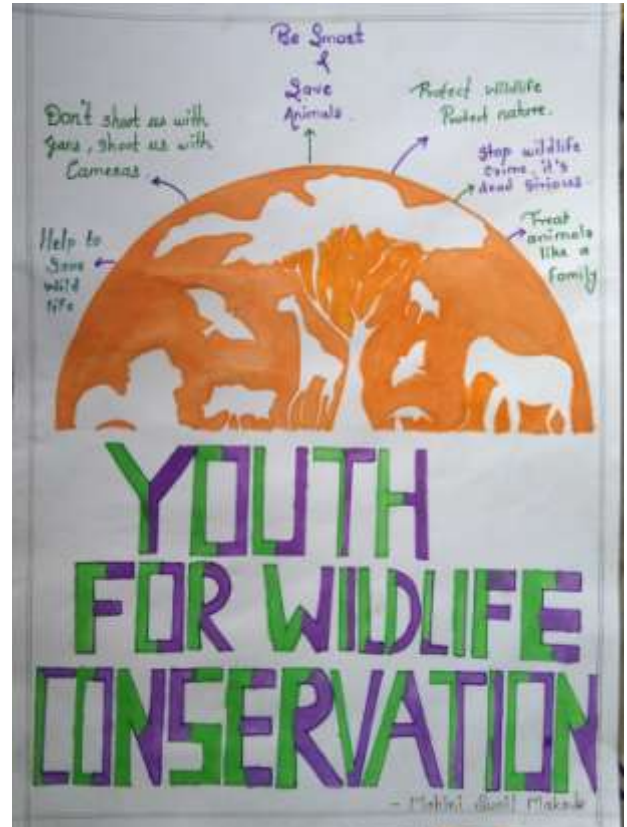 Be Smart
&
Save
Animals.
Don't shoot us with
guns, shoot us with
Cameras
Protect wildlife
Protect nature.
Stop wildlife
crime, it's
dead serious.
Help to
Save
Wild
life
Treat
animals
like a
family
YOUTH
FOR WILDLIFE
CONSERVATION
- Mohini Sunil